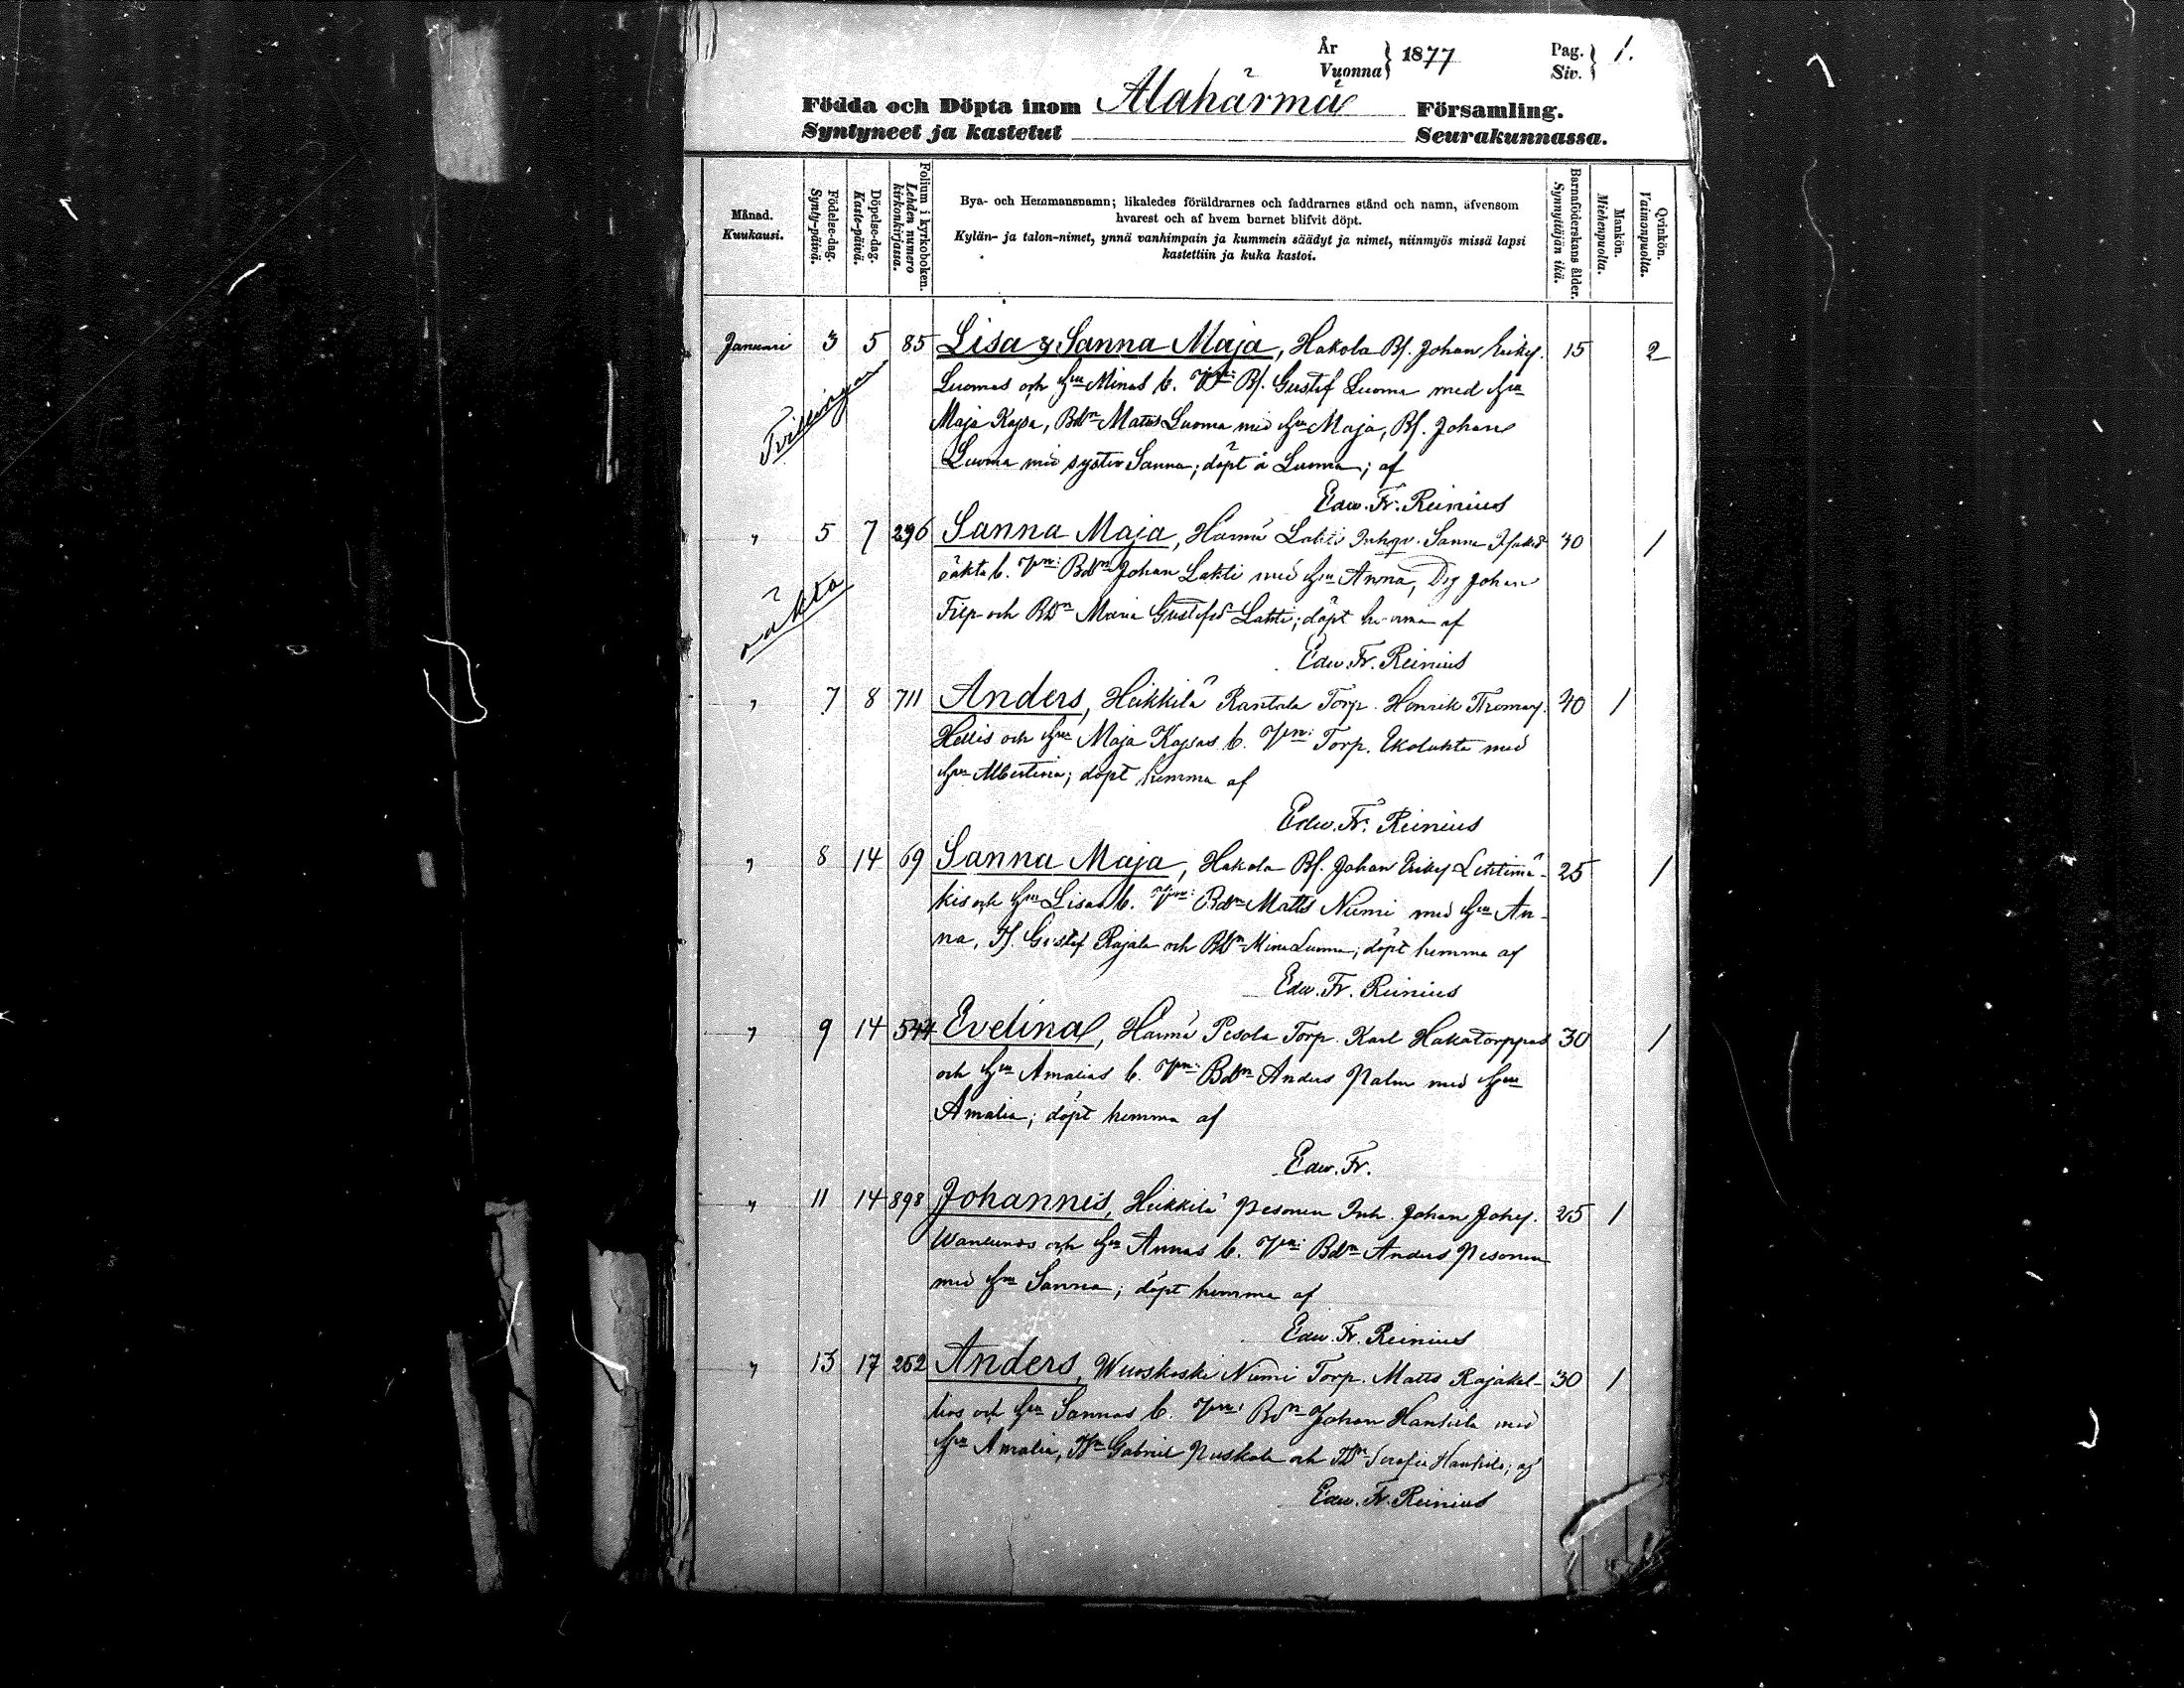 År
Vuonna } 1877
Pag.
Siv. } 1.
Födda och Döpta inom Alahärmä Församling.
Syntyneet ja kastetut Seurakunnassa.
Månad.
Kuukausi.
Födelse-dag.
Synty-päivä.
Döpelse-dag.
Kaste-päivä.
Folium i kyrkoboken.
Lehden numero
kirkonkirjassa.
Bya- och Hemmansnamn; likaledes föräldrarnes och faddrarnes stånd och namn, äfvensom
hvarest och af hvem barnet blifvit döpt.
Kylän- ja talon-nimet, ynnä vanhimpain ja kummein säädyt ja nimet, niinmyös missä lapsi
kastettiin ja kuka kastoi.
Barnaföderskans ålder.
Synnyttäjän ikä.
Mankön.
Miehenpuolta.
Qvinkön.
Vaimonpuolta.
Januari 3 5 85 Lisa & Sanna Maja, Hakola Bf. Johan Eriksf. 15 2
Tvillingar
Luomas och Hu Minas b. Vn: Bf. Gustaf Luoma med Hu
Maja Kajsa, Bdn Matts Luoma med Hu Maja, Bf. Johan
Luoma med syster Sanna; döpt å Luoma; af
Edw. Fr. Reinius
" 5 7 296 Sanna Maja, Härmä Lahti Inhqv. Sanna 30 1
oäkta
oäkta b. Vn: Bdn Johan Lahti med Hu Anna, Dg Johan
Filp och Bdn Maria Gustafsd Lahti; döpt hemma af
Edw. Fr. Reinius
" 7 8 711 Anders, Heikkilä Rantala Torp. Henrik Thomasf. 40 1
och Hu Maja Kajsas b. Vn: Torp. med
Hu Albertina; döpt hemma af
Edw. Fr. Reinius
" 8 14 69 Sanna Maja, Hakola Bf. Johan Eriksf Lehtimä- 25 1
kis och Hu Lisas b. Vn: Bdn Matts Niemi med Hu An-
na, Gustaf Rajala och Bdn Mina Luoma; döpt hemma af
Edw. Fr. Reinius
" 9 14 544 Evelina, Härmä Pesola Torp. Karl Hakatorppas 30 1
och Hu Amalias b. Vn: Bdn Anders Palm med Hu
Amalia; döpt hemma af
Edw. Fr.
" 11 14 898 Johannes, Heikkilä Pesonen Inh. Johan Johsf. 25 1
och Hu Annas b. Vn: Bdn Anders Pesonen
med Hu Sanna; döpt hemma af
Edw. Fr. Reinius
" 13 17 252 Anders, Wuoskoski Niemi Torp. Matts Rajakal- 30 1
lios och Hu Sannas b. Vn: Bdn Johan Hankila med
Hu Amalia, Gabriel Puskala och Serafia Hankila; af
Edw. Fr. Reinius